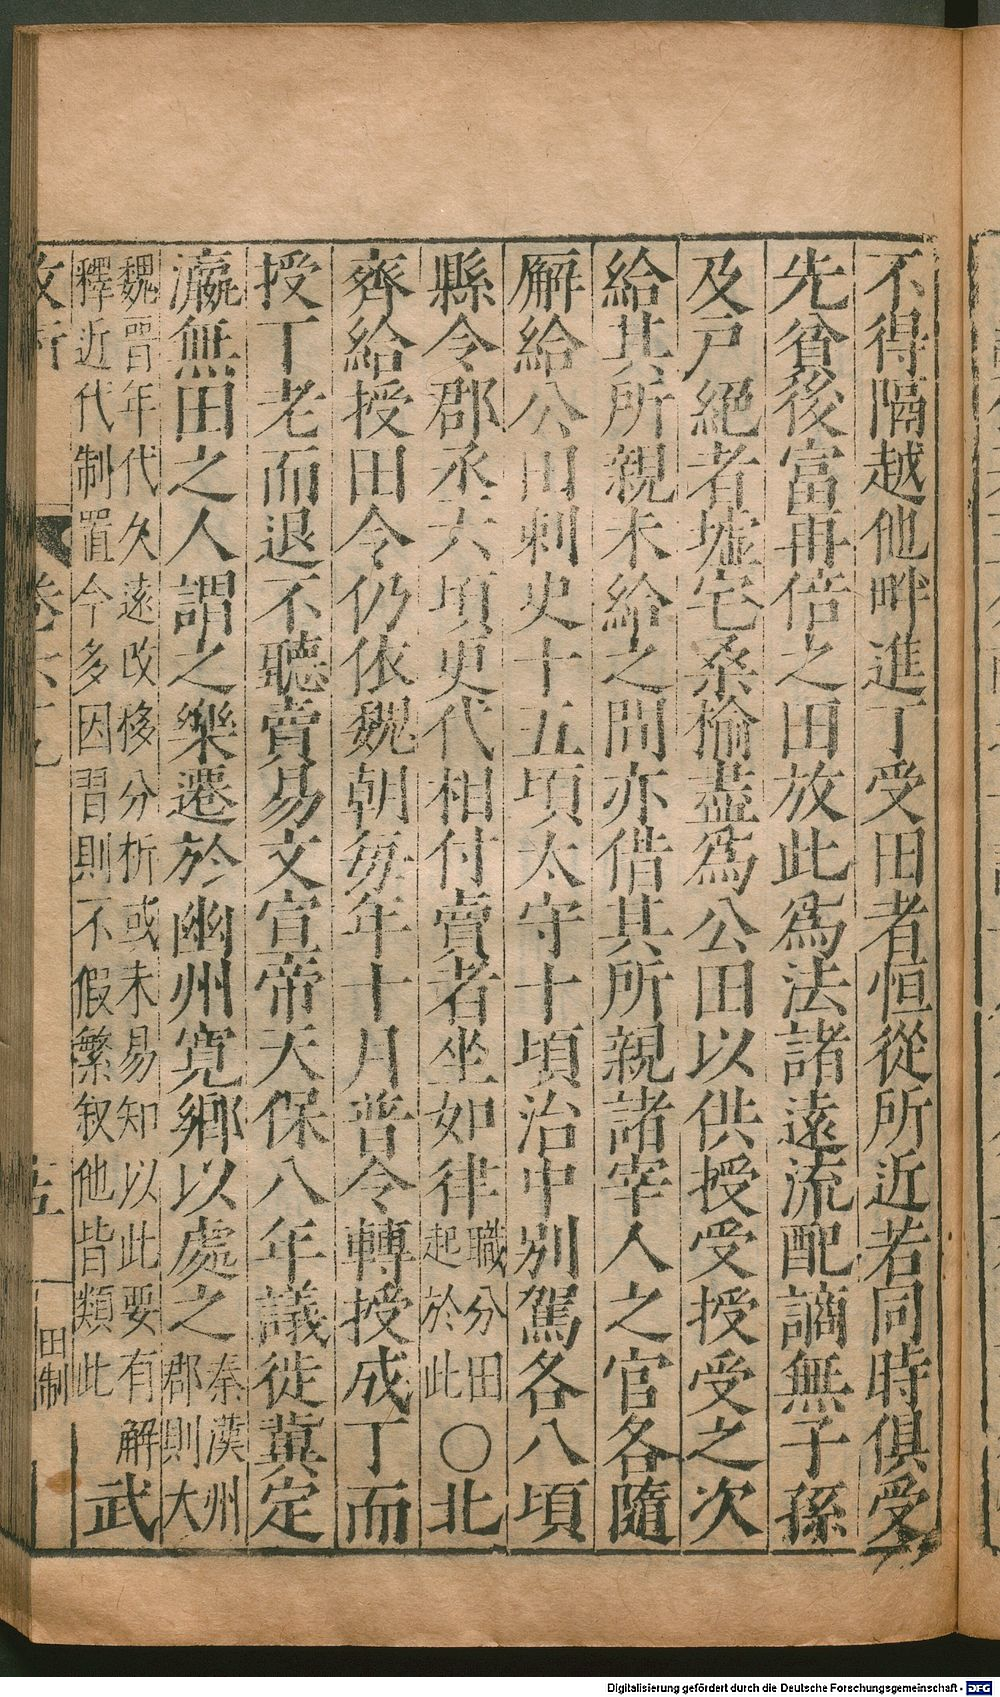 不得隔越他畔進丁受田者恒從所近若同時俱受
先貧後富再倍之田放此爲法諸遠流配謫無子孫
及戶絕者墟宅桑榆盡爲公田以供授受授受之次
給其所親未給之間亦借其所親諸宰人之官各隨
解給公田刺史十五頃太守十頃治中別駕各八頃
縣令郡丞六頃更代相付賣者坐如律職分田起於此〇北
齊給授田令仍依魏朝每年十月普令轉授成丁而
授丁老而退不聽賣易文宣帝天保八年議徙冀定
瀛無田之人謂之樂遷於幽州寬鄉以處之秦漢州郡則大
魏晉年代久遠改移分析或未易知以此要有解
釋近代制置今多因習則不假繁叙他皆類此
武
田制
Digitalisierung gefördert durch die Deutsche Forschungsgemeinschaft - DFG